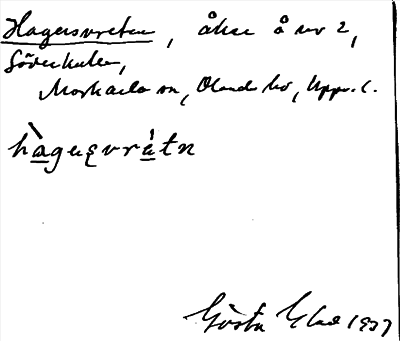 Hagersvreten, åker å nr 2,
Söderkulla,
Morkarla sn, Oland hd, Upps. l.
hàgeʂvrátn
Gösta Elad 1937